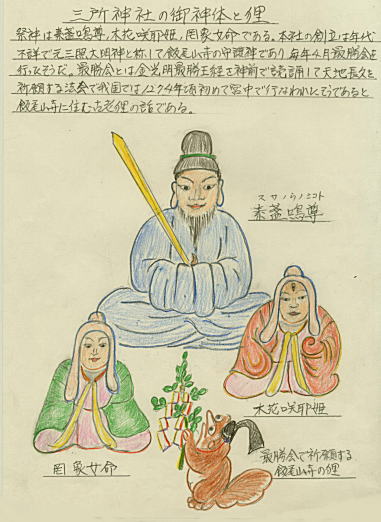 三所神社の御神体と狸
祭神は素盞嗚尊、木花咲耶姫、罔象女命である。本社の創立は年代
不詳で元三照大明神と称して飯尾山寺の守護神であり毎年4月最勝会を
行ったそうだ。最勝会とは金光明最勝王経を神前で読誦して天地長久を
祈願する法会で我国では1224年頃初めて宮中で行なわれたそうであると
飯尾山寺に住む古老狸の話である。
スサノウノミコト
素盞嗚尊
木花咲耶姫
罔象女命
最勝会で祈願する
飯尾山寺の狸